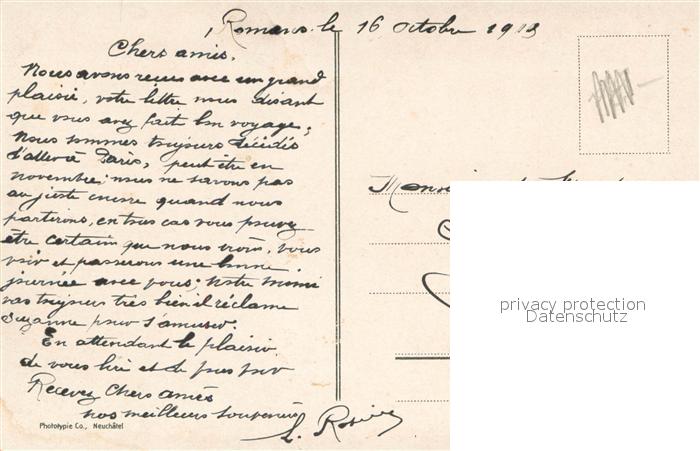 Romans. le 16 Octobre 1913
Chers amis.
Nous avons reçus avec un grand
plaisir, votre lettre nous disant
que vous avez fait bon voyage;
Nous sommes toujours décidés
d'aller à Paris, peut être en
novembre; nous ne savons pas
au juste encore quand nous
partirons, en tous cas vous pouvez
être certain que nous irons, vous
voir et passerons une bonne
journée avec vous; notre
vas toujours très bien il réclame
Suzanne pour s'amuser.
En attendant le plaisir
de vous lire et de
Recevez Chers amis
nos meilleurs souvenirs
L.
Phototypie Co., Neuchâtel
privacy protection
Datenschutz